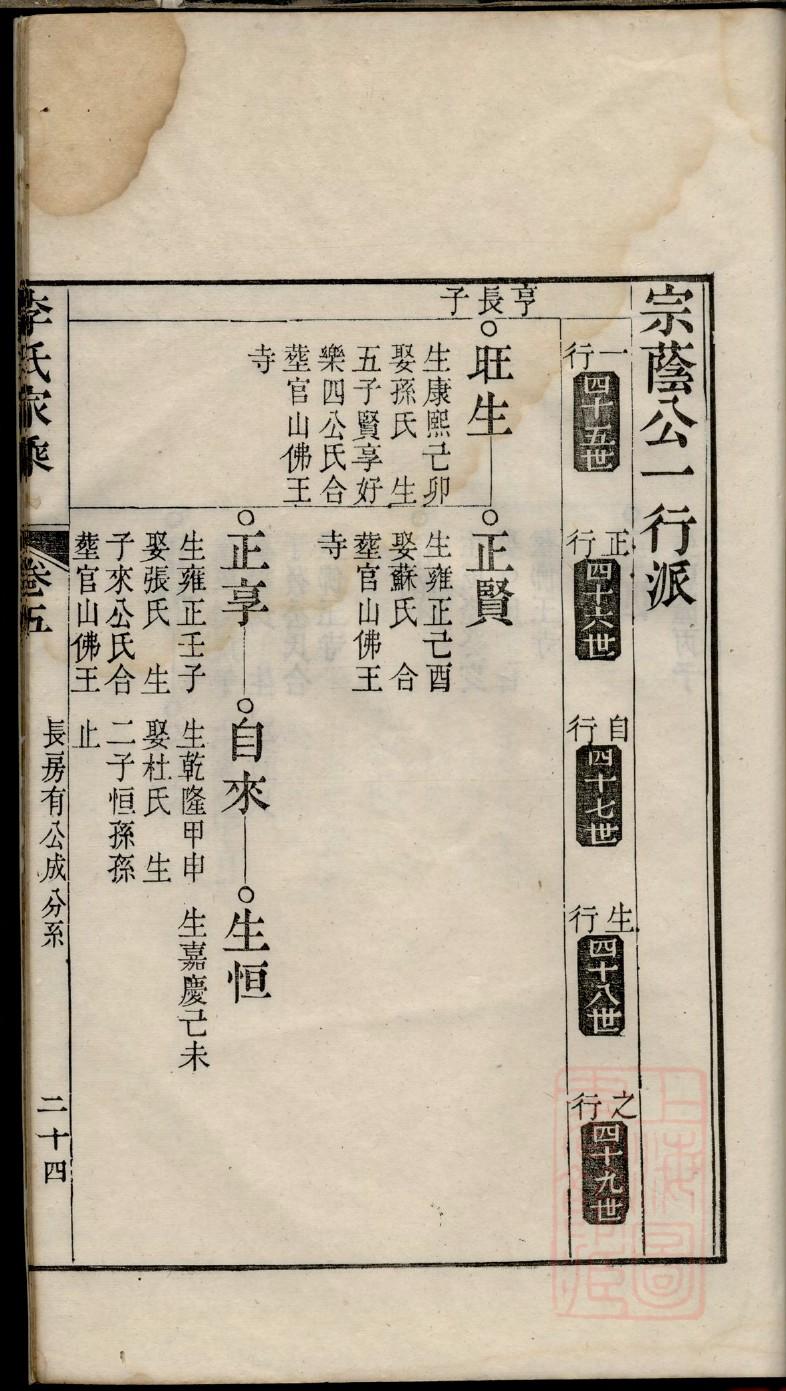 宗蔭公一行派
一行
四十五世
正行
四十六世
自行
四十七世
生行
四十八世
之行
四十九世
亨長子
旺生
生康熙己卯
娶孫氏 生
五子賢享好
樂四公氏合
塟官山佛王
寺
正賢
生雍正己酉
娶蘇氏 合
塟官山佛王
寺
正享
生雍正壬子
娶張氏 生
子來公氏合
塟官山佛王
自來
生乾隆甲申
娶杜氏 生
二子恒孫孫
止
生恒
生嘉慶己未
李氏家乘
卷五
長房有公成分系
二十四
上海圖